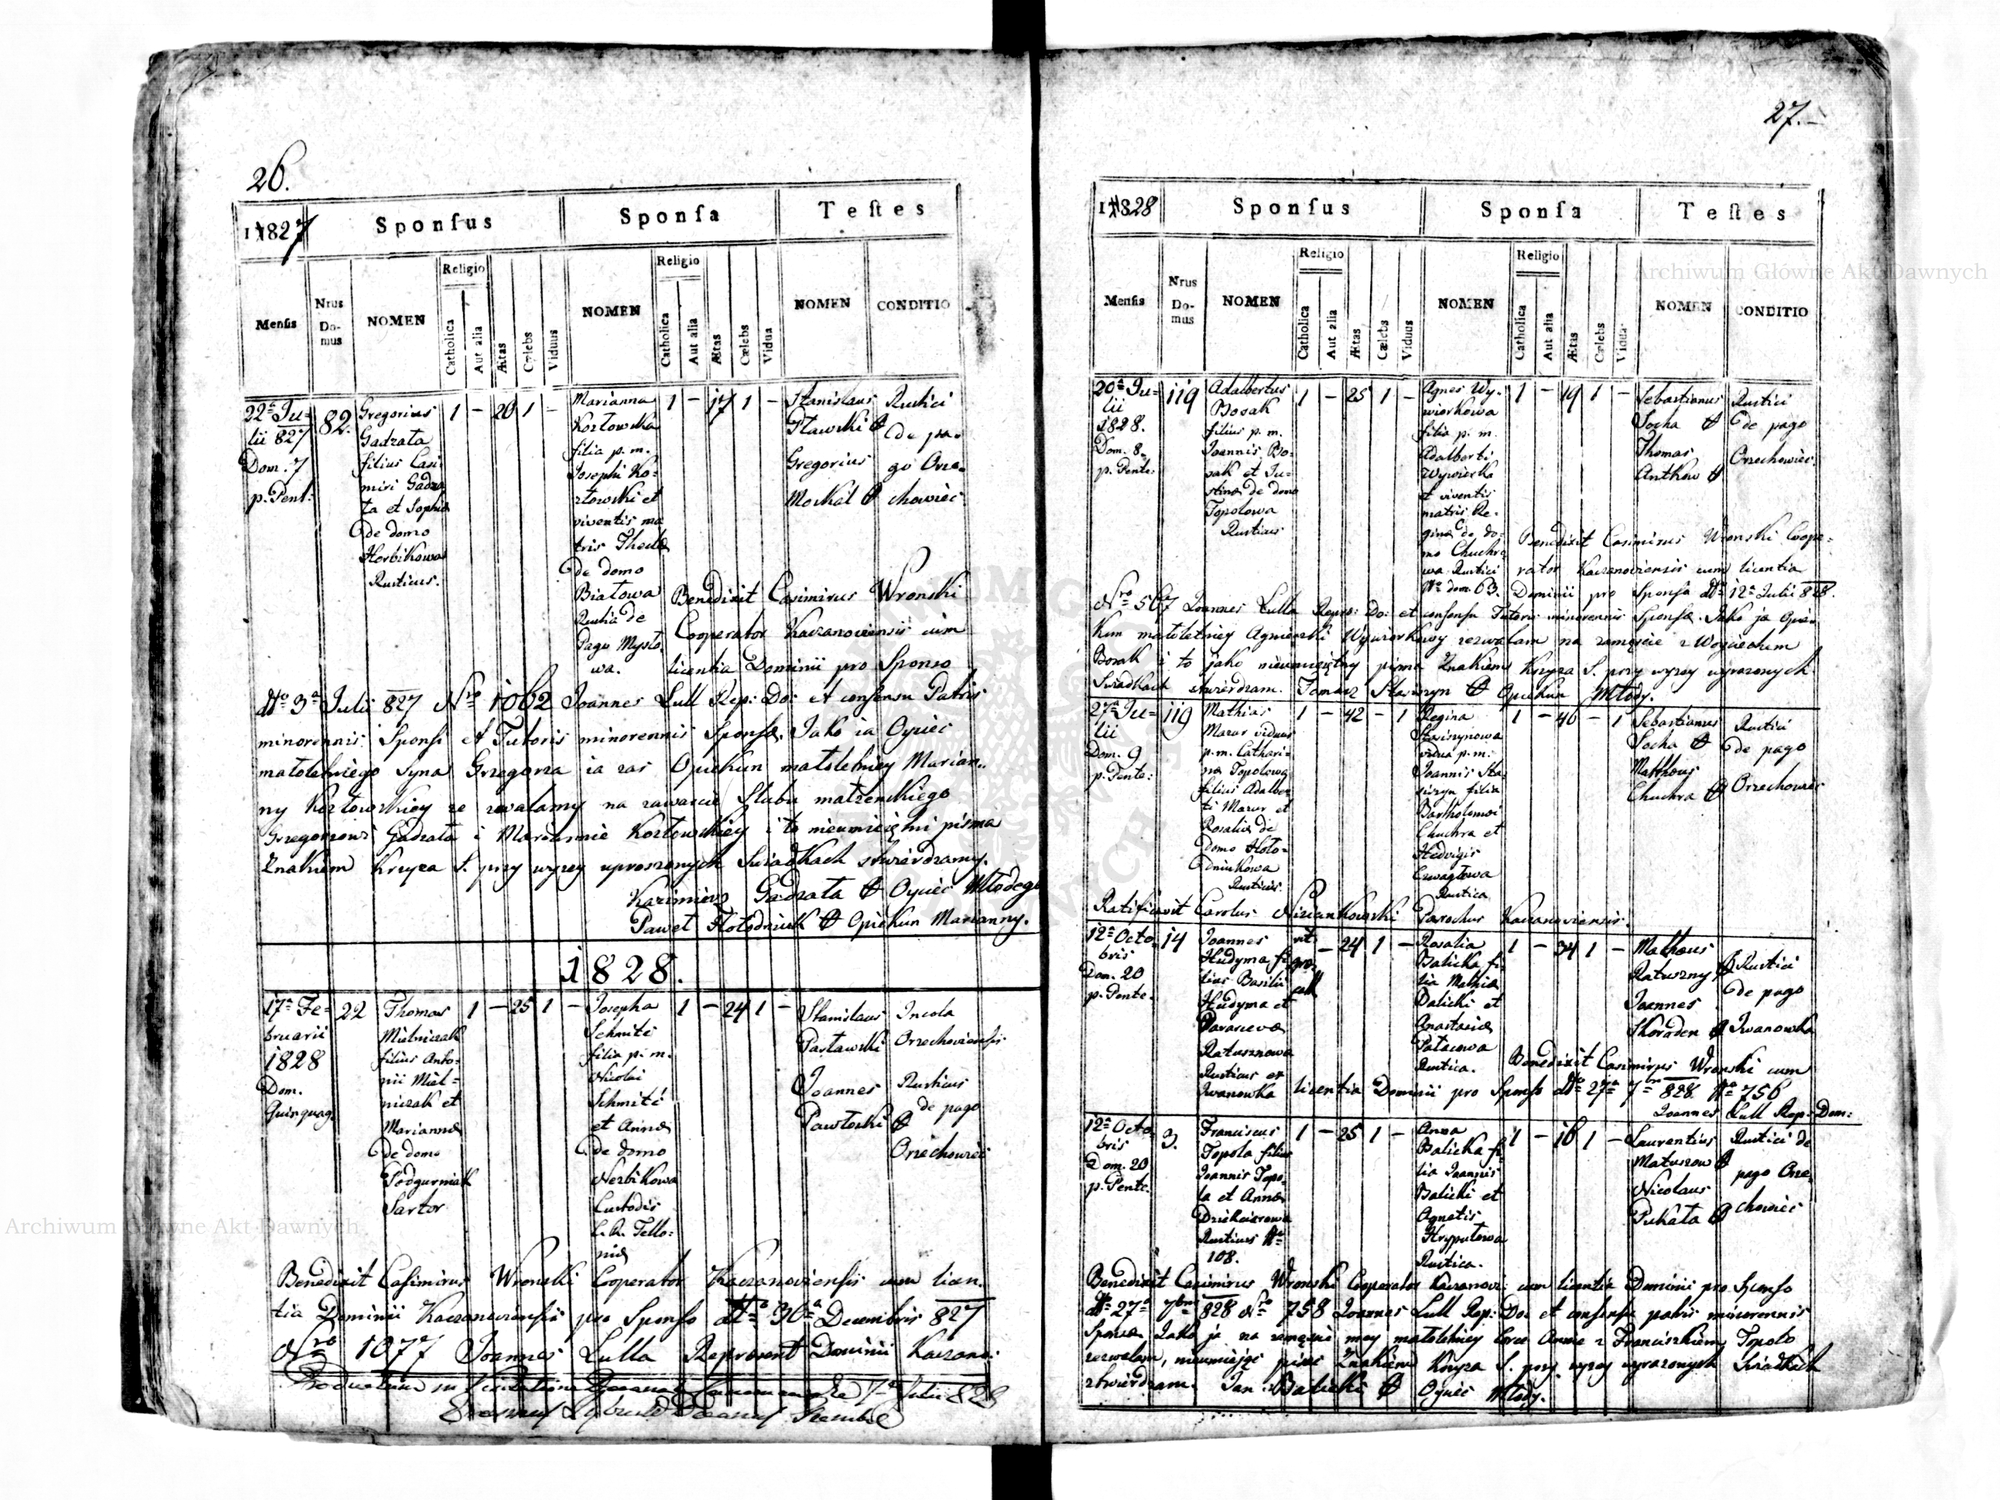 26.
1827
Sponsus
Sponsa
Testes
Mensis
Nrus Domus
NOMEN
Religio
Catholica
Aut alia
Ætas
Cælebs
Viduus
NOMEN
Religio
Catholica
Aut alia
Ætas
Cælebs
Viduus
NOMEN
CONDITIO
22a Ju=
lii 827
Dom. 7
p. Pent.
82.
Gregorius
Gadzała
filius Casi
miri Gadza
ła et Sophiæ
de domo
Horbikowa
Rusticus.
1 – 20 1 –
Marianna
Kozłowska
filia p. m.
Josephi Ko-
złowski et
viventis ma
tris Theclæ
de domo
Białowa
Rustica de
Pago Mysło
wa.
1 – 17 1 –
Stanislaus
Stawski
Gregorius
Moskal
Rustici
de pa-
go Orze-
chowiec
Benedixit Casimirus Wronski
Cooperator Kaczanoviensis cum
licentia Dominii pro Sponso
dto 3a Julii 827 Nro 1062 Joannes Lull Rep: Do: et consensu Patris
minorennis Sponsi et Tutoris minorennis Sponsæ. Jako ia Oyciec
małoletniego syna Grzegorza ia zaś Opiekun małoletniey Marian-
ny Kozłowskiey ze zwalamy na zawarcie Slubu małzenskiego
Grzegorzowi Gadzała i Mariannie Kozłowskiey i to nieumieiętni pisma
Znakiem Krzyza S. przy wyzey uproszonych Swiadkach stwierdzamy.
Kazimierz Gadzała Oyciec Młodego
Paweł Hołodniuk Opiekun Marianny.
1828.
17a Fe=
bruarii
1828
Dom.
Quinquag.
22
Thomas
Mielniczak
filius Anto-
nii Miel-
niczak et
Mariannæ
de domo
Podgurniak
Sartor
1 – 25 1 –
Josepha
Schmite
filia p. m.
Nicolai
Schmite
et Annæ
de domo
Herbikowa
Custodis
C. R. Tello-
nii
1 – 24 1 –
Stanislaus
Pasławski
Joannes
Pawłoski
Incola
Orzechoviensis
Rusticus
de pago
Orzechowiec
Benedixit Casimirus Wronski Cooperator Kaczanoviensis cum licen-
tia Dominii Kaczanoviensis pro Sponso dto 30a Decembris 827
Nro 1077 Joannes Lulla Represent Dominii Kaczano:
27.
1828
Sponsus
Sponsa
Testes
Mensis
Nrus Domus
NOMEN
Religio
Catholica
Aut alia
Ætas
Cælebs
Viduus
NOMEN
Religio
Catholica
Aut alia
Ætas
Cælebs
Vidua
NOMEN
CONDITIO
20a Ju=
lii
1828.
Dom. 8.
p. Pente.
119
Adalbertus
Bosak
filius p. m.
Joannis Bo-
sak et Ju-
stinæ de domo
Topolowa
Rusticus
1 – 25 1 –
Agnes Wy-
wiorkowa
filia p. m.
Adalberti
Wywiorka
et viventis
matris Re-
ginæ de do-
mo Chuchra
wa Rustici
Nro dom. 63.
1 – 19 1 –
Sebastianus
Socha
Thomas
Antkow
Rustici
de pago
Orzechowiec
Benedixit Casimirus Wronski Coope-
rator Kaczanoviensis cum licentia
Dominii pro Sponsa dto 12a Julii 828.
Nro 567 Joannes Lulla Repre: Do: et consensu Tutoris minorennis Sponsæ. Jako ja Opie-
kun małoletniey Agnieszki Wywiorkowy zezwalam na zamęscie z Woyciechem
Bosak i to jako nieumieiętny pisma Znakiem Krzyza S. przy wyzey wyrazonych
Swiadkach stwierdzam. Tomasz Stasiszyn Opiekun Młody.
27a Ju=
lii
Dom. 9
p. Pente:
119
Mathias
Mazur viduus
p. m. Cathari-
na Topolowa
filius Adalber
ti Mazur et
Rosaliæ de
domo Hoło-
dniukowa
Rusticus.
1 – 42 – 1
Regina
Stasiszynowa
vidua p. m.
Joannis Sta-
siszyn filia
Bartholomei
Chuchra et
Hedvigis
Rustica
1 – 40 – 1
Sebastianus
Socha
Matheus
Chuchra
Rustici
de pago
Orzechowiec
Ratificavit Carolus Parochus Kaczanoviensis.
12a Octo
bris
Dom. 20
p. Pente.
14
Joannes
Hudyma fi-
lius Basilii
Hudyma et
Parascevæ
Ratusznowa
Rusticus ex
Iwanowka
– 24 1 –
Rosalia
Balicka fi-
lia Mathiæ
Balicki et
Anastasiæ
Patacowa
Rustica.
1 – 34 1 –
Matheus
Ratuszny
Joannes
Skoroden
Rustici
de pago
Iwanowka
Benedixit Casimirus Wronski cum
licentia Dominii pro Sponso dto 27a 7bris 828 Nro 756
Joannes Lull Rep: Dom:
12a Octo
bris
Dom. 20
p. Pente.
3.
Franciscus
Topola filius
Joannis Topo-
la et Annæ
Dziekciarowa
Rusticus Nro
108.
1 – 25 1 –
Anna
Balicka fi-
lia Joannis
Balicki et
Agnetis
Hryputowa
Rustica.
1 – 16 1 –
Laurentius
Matuszow
Nicolaus
Pukała
Rustici de
pago Orze-
chowiec
Benedixit Casimirus Wronski Cooperator Kaczanov: cum licentia Dominii pro Sponso
dto 27a 7bris 828 Nro 758 Joannes Lull Rep: Do: et consensu patris minorennis
Sponsæ. Jako ja na zamęscie mey małoletniey Corce Annie z Franciszkiem Topolo
zezwalam, nieumiejąc pisać Znakiem Krzyza S. przy wyzey wyrazonych Swiadkach
stwierdzam. Jan Balicki Oyciec Młody.
Archiwum Główne Akt Dawnych
Archiwum Główne Akt Dawnych